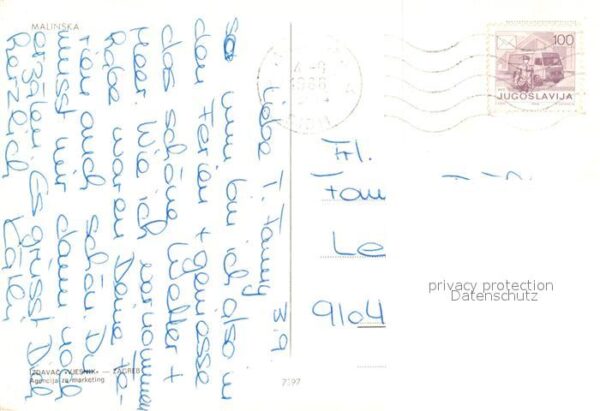 MALINSKA
Liebe T. Fanny 3.9.
so nun bin ich also in
den Ferien + geniesse
das schöne Wetter +
Meer. Wie ich vernommen
habe waren Deine Fe-
rien auch schön. Du
musst mir dann noch
erzählen. Es grüsst Dich
herzlich
JUGOSLAVIJA
100
Frl.
Fan
Le
9104
privacy protection
Datenschutz
IZDAVAČ »VJESNIK« — ZAGREB
Agencija za marketing
7197